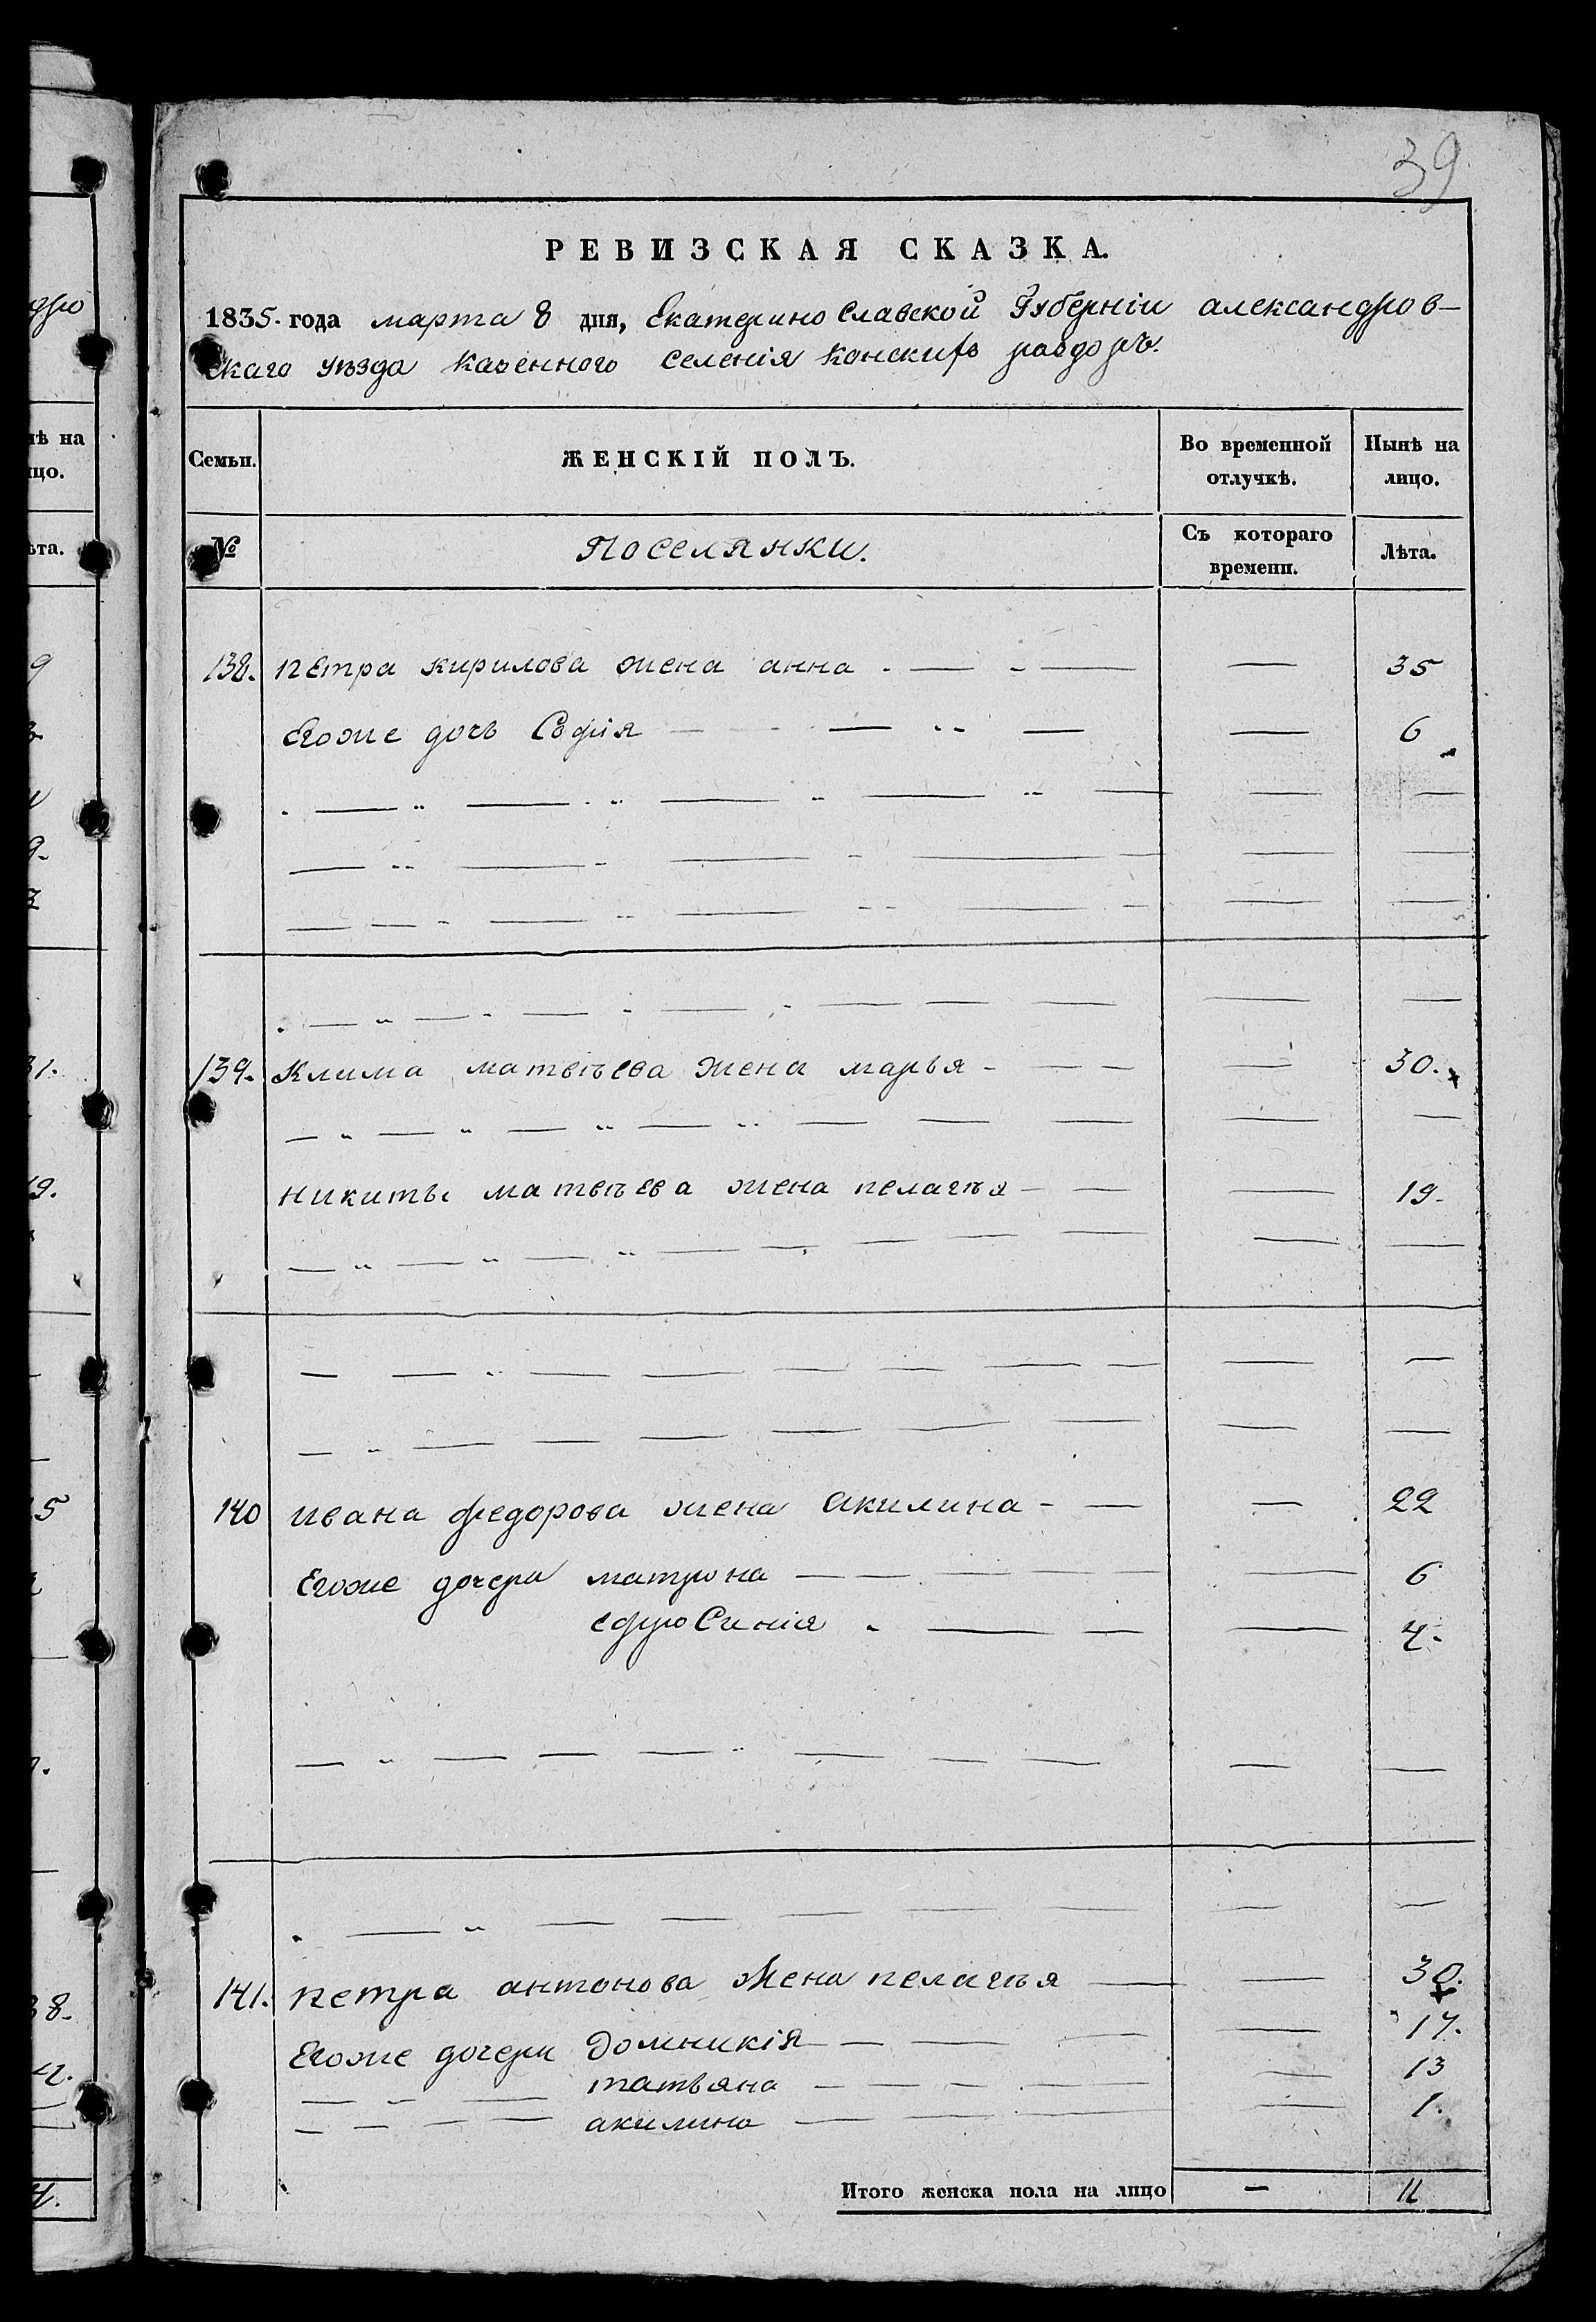 39
РЕВИЗСКАЯ СКАЗКА.
1835. года марта 8 дня, Екатеринославской Губерніи александров-
скаго уѣзда казенного селенія Конскихъ раздоръ.
Семьи. ЖЕНСКІЙ ПОЛЪ. Во временной отлучкѣ. Нынѣ на лицо.
№ Поселянки. Съ котораго времени. Лѣта.
138. петра кирилова жена анна 35
Егоже дочь Софія 6
139. Клима матвѣева жена марья 30.
никиты матвѣева жена пелагѣя 19.
140 ивана федорова жена акилина 22
Егоже дочери матрона 6
ефросинія 4.
141. петра антонова жена пелагѣя 30.
Егоже дочери Домникія 17.
татьяна 13
акилина 1.
Итого женска пола на лицо — 11